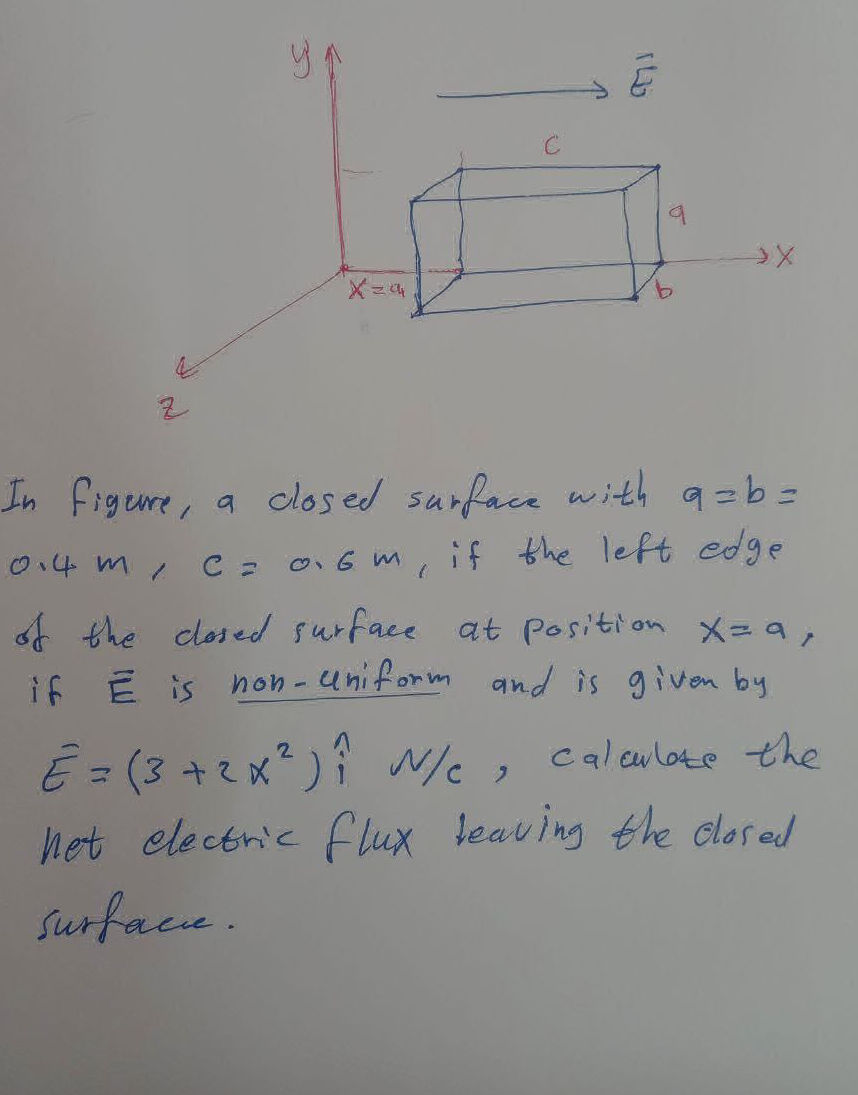 y
Ē
C
a
X
X=a
b
z
In figure, a closed surface with a=b=
0.4 m, C= 0.6 m, if the left edge
of the closed surface at position X=a,
if Ē is non-uniform and is given by
Ē=(3+2X²)î N/c, calculate the
net electric flux leaving the closed
surface.